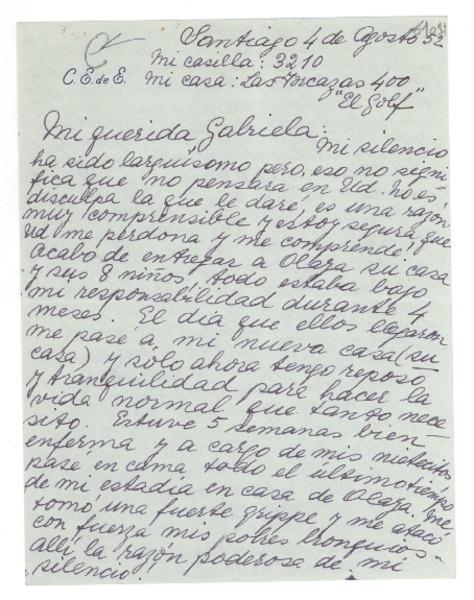 Santiago 4 de Agosto 52
Mi casilla: 3210
C. E. de E. Mi casa: Las Torcazas 400
"El Golf"
Mi querida Gabriela:
Mi silencio
ha sido larguísomo pero, eso no signi
fica que no pensara en Ud. No es
disculpa la que le daré, es una razón
muy comprensible y estoy segura que
Ud me perdona y me comprende!
Acabo de entregar a Olaya su casa
y sus 8 niños, todo estaba bajo
mi responsabilidad durante 4
meses. El día que ellos llegaron
me pasé a mi nueva casa (su
casa) y sólo ahora tengo reposo
y tranquilidad para hacer la
vida normal que tanto nece
sito. Estuve 5 semanas bien
enferma y a cargo de mis nietecitos
pasé en cama todo el último tiempo
de mi estadía en casa de Olaya. Me
tomó una fuerte grippe y me atacó
con fuerza mis pobres bronquios.
allí la razón poderosa de mi
silencio!